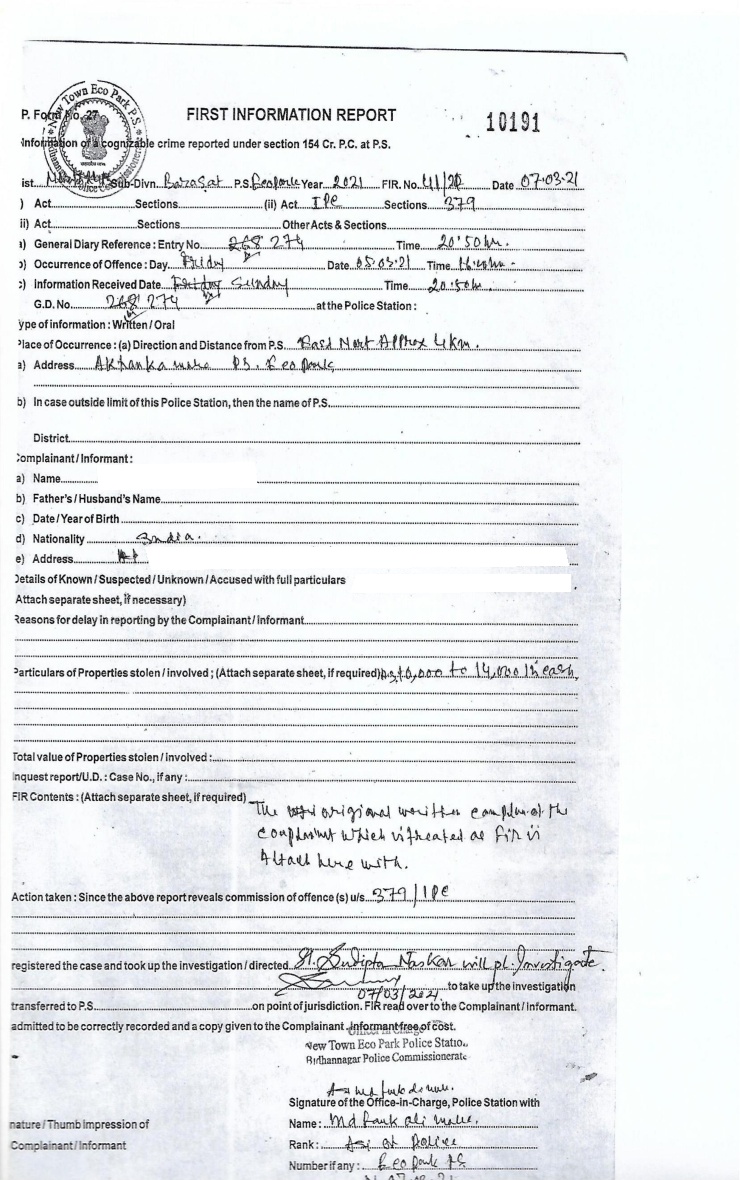 New Town Eco Park P.S.
P. Form No. 27
FIRST INFORMATION REPORT
10191
Information of a cognizable crime reported under section 154 Cr. P.C. at P.S.
ist. Sub-Divn. Barasat P.S. Ecopark Year 2021 FIR. No. 41/21 Date 07.03.21
) Act Sections (ii) Act IPC Sections 379
ii) Act Sections Other Acts & Sections
a) General Diary Reference : Entry No. 268 274 Time 20:50 hr.
b) Occurrence of Offence : Day. Friday Date 05.03.21 Time
c) Information Received Date Friday Sunday Time 20.50 hr
G.D. No. 268 274 at the Police Station :
ype of information : Written / Oral
Place of Occurrence : (a) Direction and Distance from P.S. East Nort Approx 4 km.
a) Address Akhanka P.S. Eco park
b) In case outside limit of this Police Station, then the name of P.S.
District
Complainant / Informant :
a) Name
b) Father's / Husband's Name
c) Date / Year of Birth
d) Nationality India.
e) Address
Details of Known / Suspected / Unknown / Accused with full particulars
Attach separate sheet, if necessary)
Reasons for delay in reporting by the Complainant / Informant
Particulars of Properties stolen / involved ; (Attach separate sheet, if required) to 14,000 in cash,
Total value of Properties stolen / involved :
nquest report/U.D. : Case No., if any :
FIR Contents : (Attach separate sheet, if required)
The origional written of the
complainant which is treated as FIR is
Attach here with.
Action taken : Since the above report reveals commission of offence (s) u/s 379/IPC
registered the case and took up the investigation / directed SI. Sudipta Naskar will pl. Investigate.
to take up the investigation
07/03/2021
transferred to P.S. on point of jurisdiction. FIR read over to the Complainant / Informant.
admitted to be correctly recorded and a copy given to the Complainant Informant free of cost.
New Town Eco Park Police Statio
Bidhannagar Police Commissionerate
Signature of the Office-in-Charge, Police Station with
nature / Thumb Impression of
Name : Md
Complainant / Informant
Rank : ASI of Police
Number if any : Eco Park PS